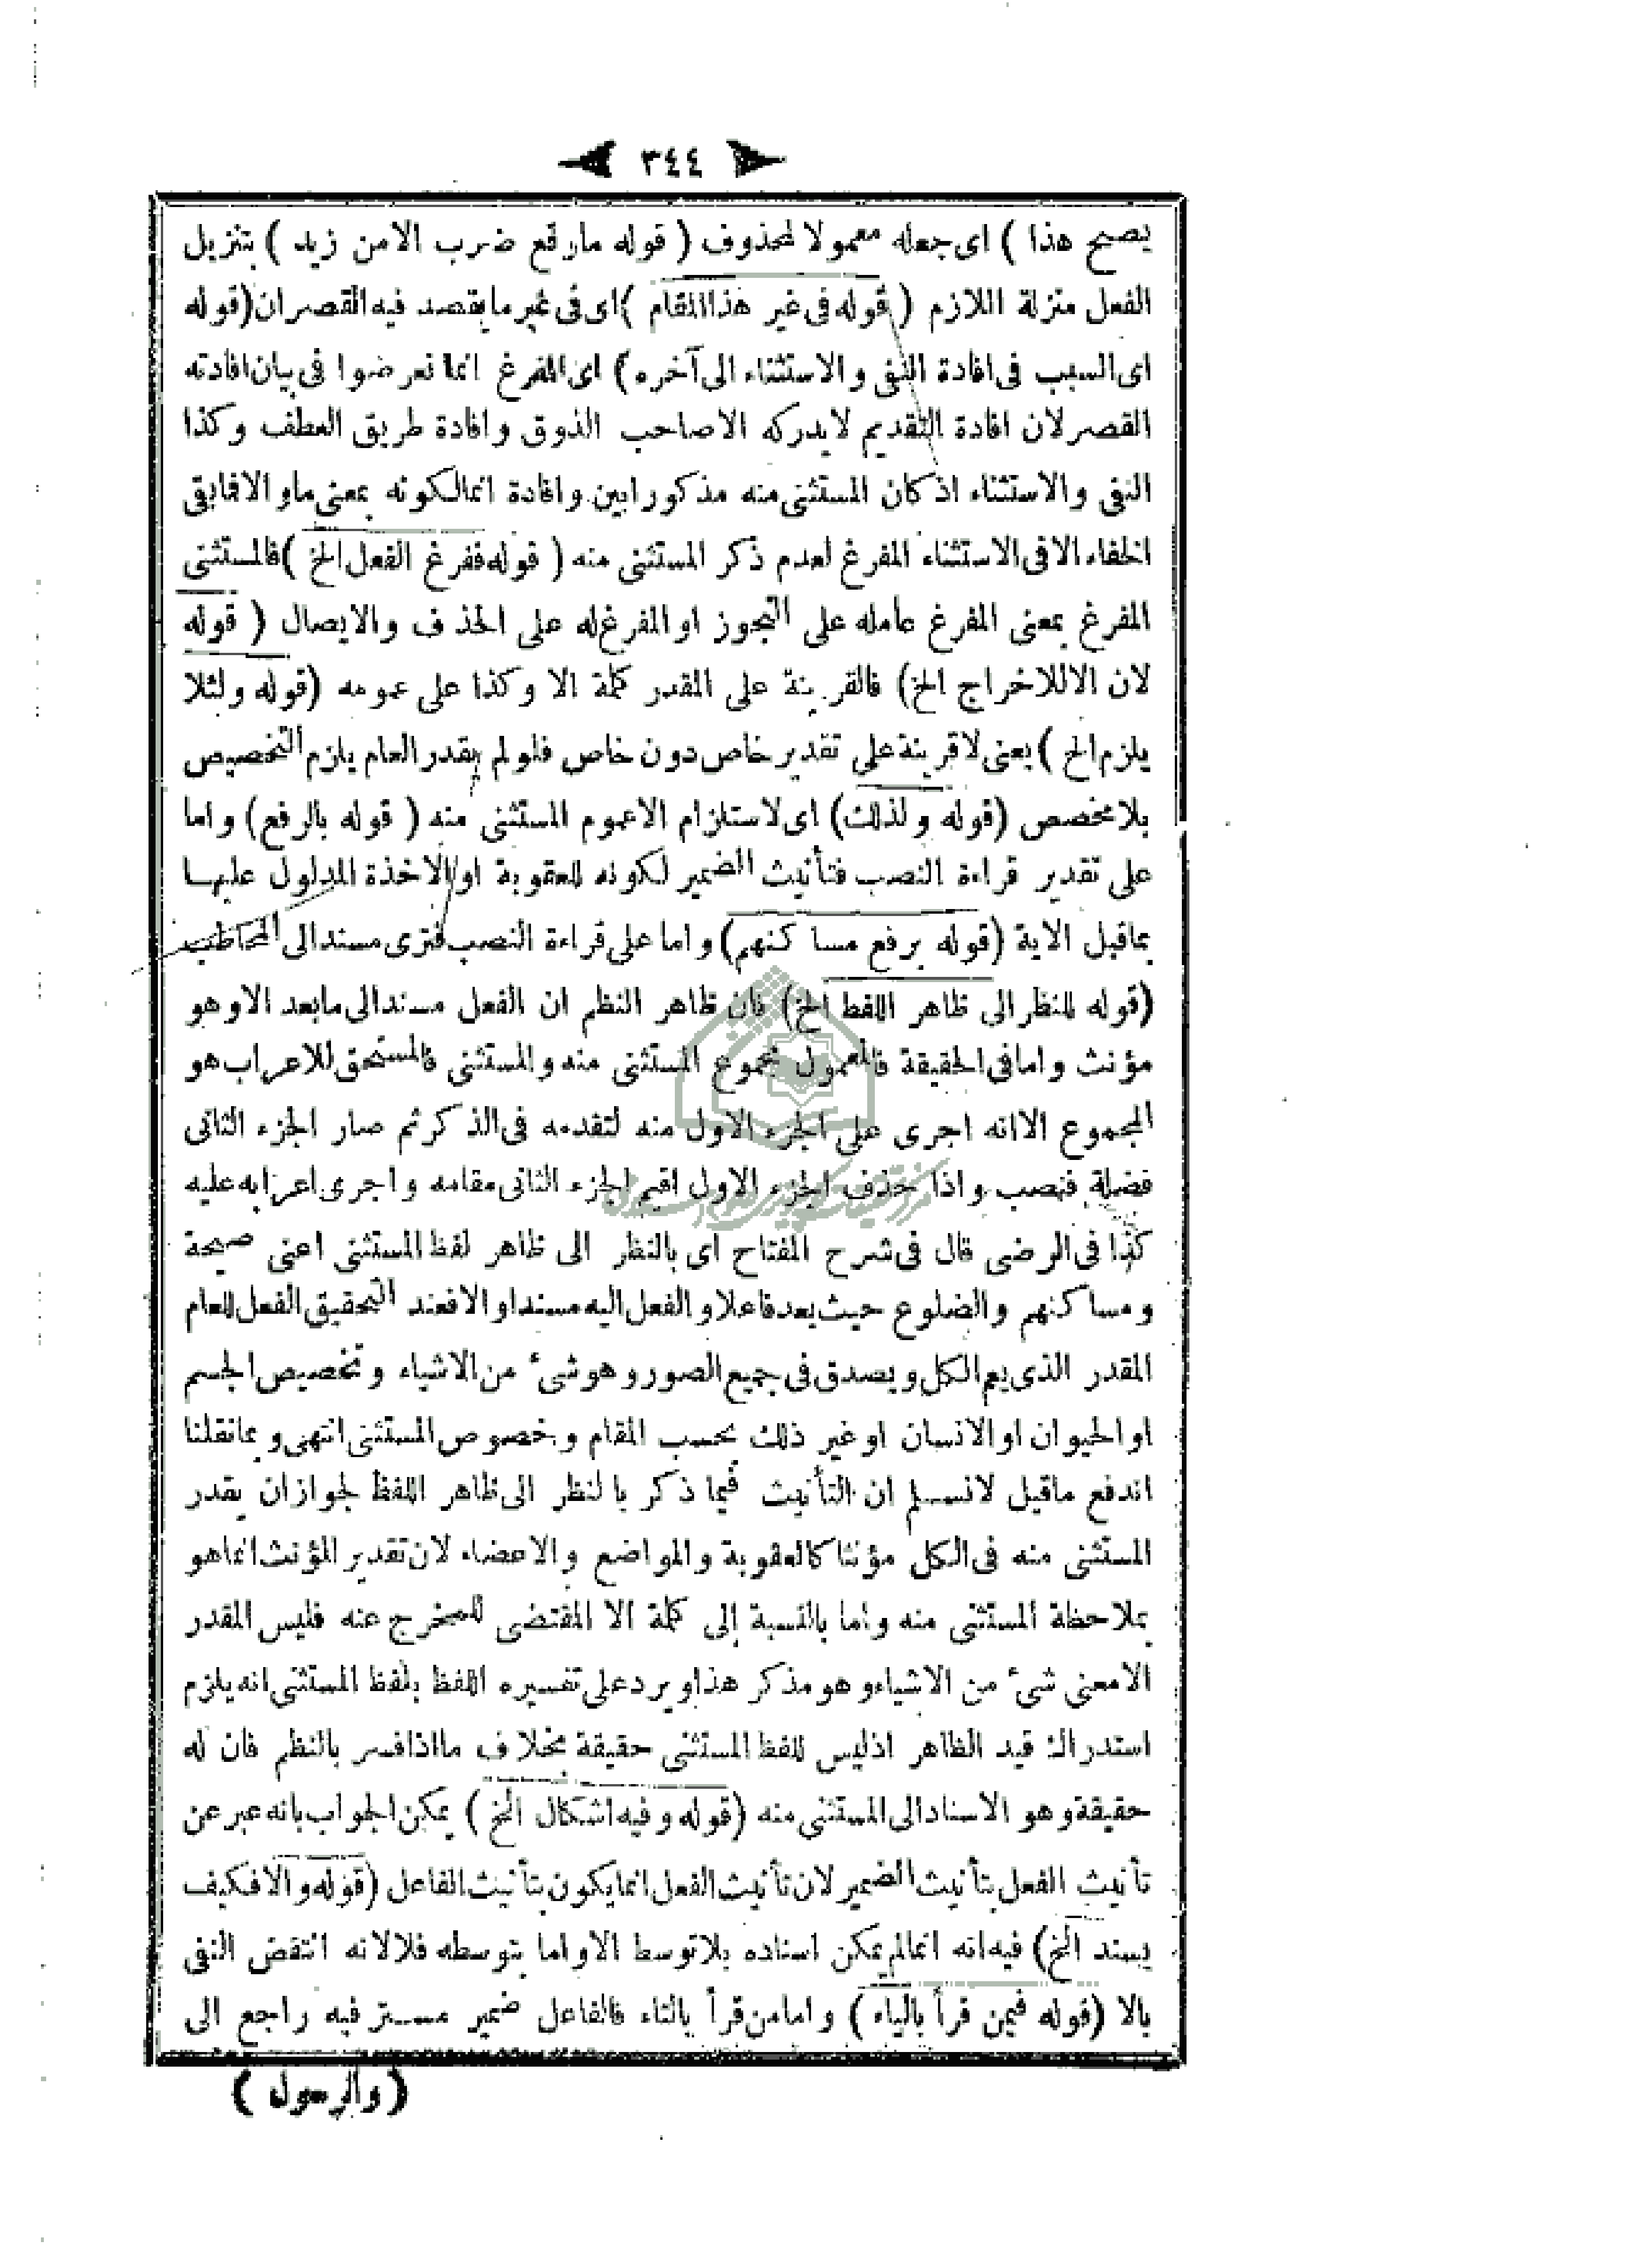 ٣٤٤
يصح هذا ) اى جعله معمولا لمحذوف ( قوله ما وقع ضرب الا من زيد ) بتنزيل
الفعل منزلة اللازم ( قوله فى غير هذا المقام ) اى فى غير ما يقصد فيه القصران ( قوله
اى السبب فى افادة النفى والاستثناء الى آخره ) اى المفرغ انما تعرضوا فى بيان افادته
القصر لان افادة التقديم لا يدركه الا صاحب الذوق وافادة طريق العطف وكذا
النفى والاستثناء اذ كان المستثنى منه مذكورا بين وافادة انما لكونه بمعنى ما والا فابقى
الخفاء الا فى الاستثناء المفرغ لعدم ذكر المستثنى منه ( قوله ففرغ الفعل الخ ) فالمستثنى
المفرغ بمعنى المفرغ عامله على التجوز او المفرغ له على الحذف والايصال ( قوله
لان الا للاخراج الخ ) فالقرينة على المقدر كلمة الا وكذا على عمومه ( قوله ولئلا
يلزم الخ ) يعنى لا قرينة على تقدير خاص دون خاص فلو لم يقدر العام يلزم التخصيص
بلا مخصص ( قوله ولذلك ) اى لاستلزام الا عموم المستثنى منه ( قوله بالرفع ) واما
على تقدير قراءة النصب فتأنيث الضمير لكونه للعقوبة او الاخذة المدلول عليها
بماقبل الاية ( قوله برفع مساكنهم ) واما على قراءة النصب فترى مسند الى المخاطب
( قوله للنظر الى ظاهر اللفظ الخ ) فان ظاهر النظم ان الفعل مسند الى مابعد الا وهو
مؤنث واما فى الحقيقة فالمعمول مجموع المستثنى منه والمستثنى فالمستحق للاعراب هو
المجموع الا انه اجرى على الجزء الاول منه لتقدمه فى الذكر ثم صار الجزء الثانى
فضلة فنصب واذا حذف الجزء الاول اقيم الجزء الثانى مقامه واجرى اعرابه عليه
كذا فى الرضى قال فى شرح المفتاح اى بالنظر الى ظاهر لفظ المستثنى اعنى صيحة
ومساكنهم والضلوع حيث يعد فاعلا والفعل اليه مسندا والا فعند التحقيق الفعل للعام
المقدر الذى يعم الكل ويصدق فى جميع الصور وهو شىء من الاشياء وتخصيص الجسم
او الحيوان او الانسان او غير ذلك بحسب المقام وخصوص المستثنى انتهى وبمانقلنا
اندفع ماقيل لانسلم ان التأنيث فيما ذكر بالنظر الى ظاهر اللفظ لجواز ان يقدر
المستثنى منه فى الكل مؤنثا كالعقوبة والمواضع والاعضاء لان تقدير المؤنث انماهو
بملاحظة المستثنى منه واما بالنسبة إلى كلمة الا المقتضى للمخرج عنه فليس المقدر
الا معنى شىء من الاشياء وهو مذكر هذا ويرد على تفسيره اللفظ بلفظ المستثنى انه يلزم
استدراك قيد الظاهر اذ ليس للفظ المستثنى حقيقة بخلاف ما اذا فسر بالنظم فان له
حقيقة وهو الاسناد الى المستثنى منه ( قوله وفيه اشكال الخ ) يمكن الجواب بانه عبر عن
تأنيث الفعل بتأنيث الضمير لان تأنيث الفعل انما يكون بتأنيث الفاعل ( قوله والا فكيف
يسند الخ ) فيه انه انما لم يمكن اسناده بلا توسط الا واما بتوسطه فلا لانه انتقض النفى
بالا ( قوله فيمن قرأ بالياء ) واما من قرأ بالتاء فالفاعل ضمير مستتر فيه راجع الى
( والرسول )